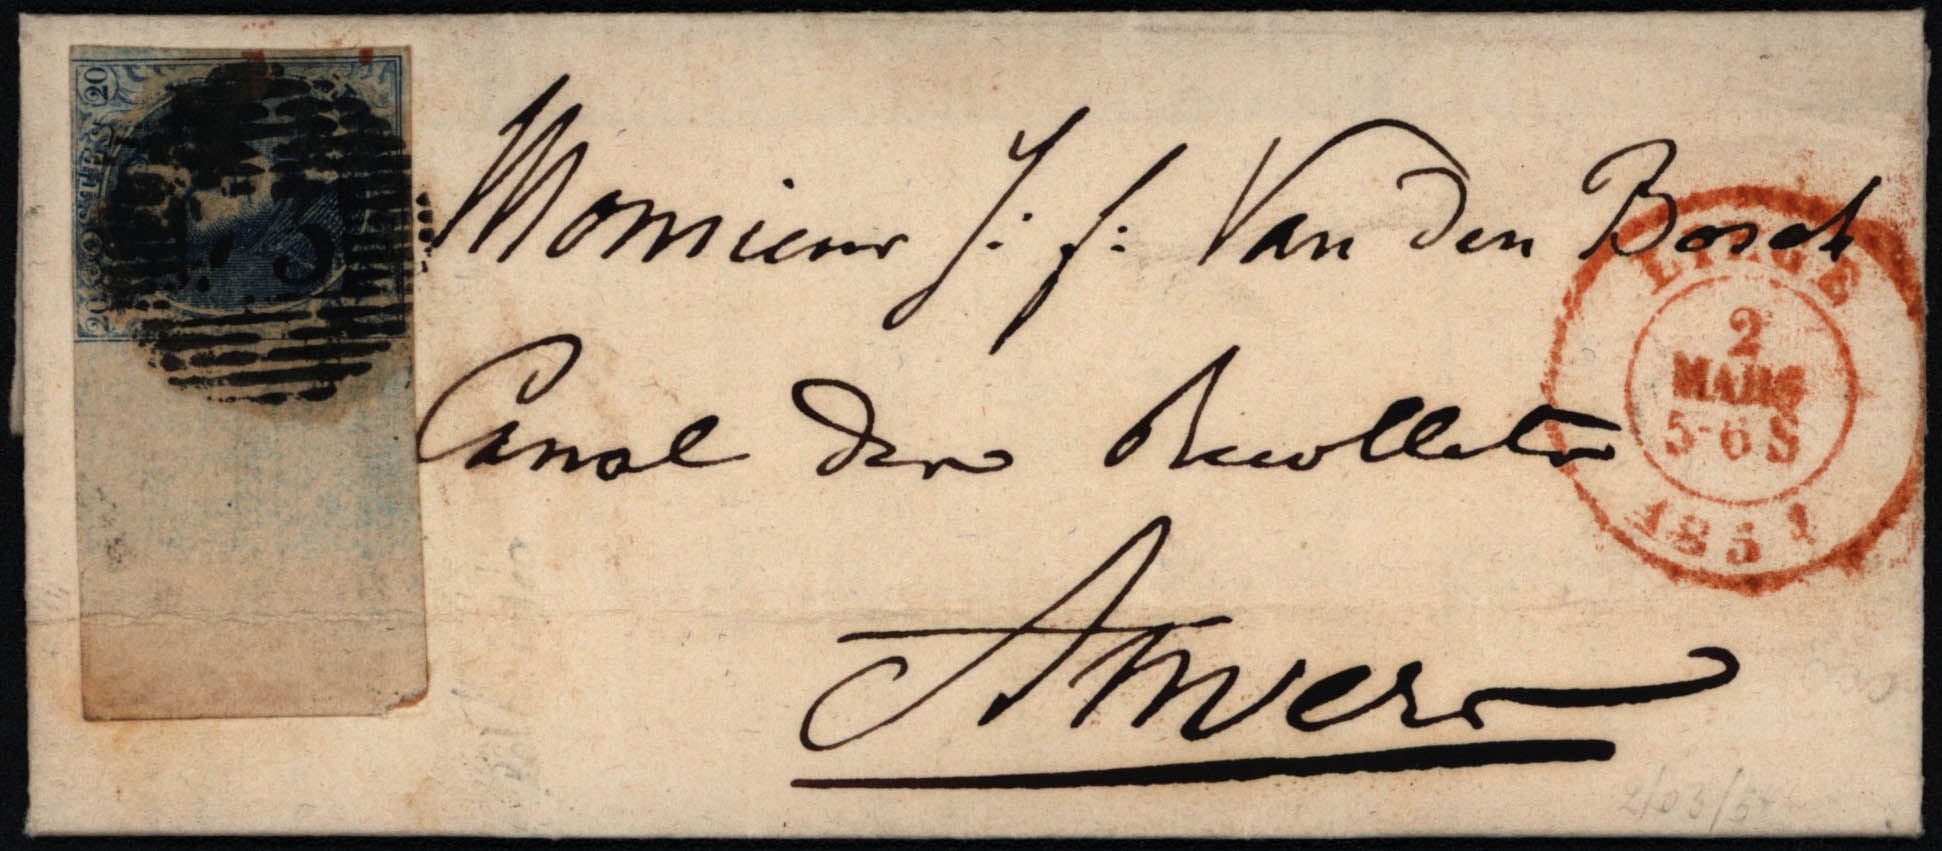 20
POSTES
20
73
Monsieur J. J. Van den Bosch
Canal den Recollets
Anvers
LIEGE
2
MARS
5-6 S
1851